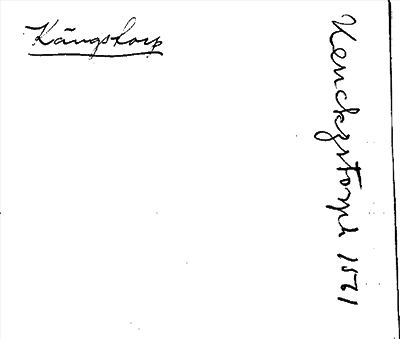 Kängstorp
Kenckzstorph 1561